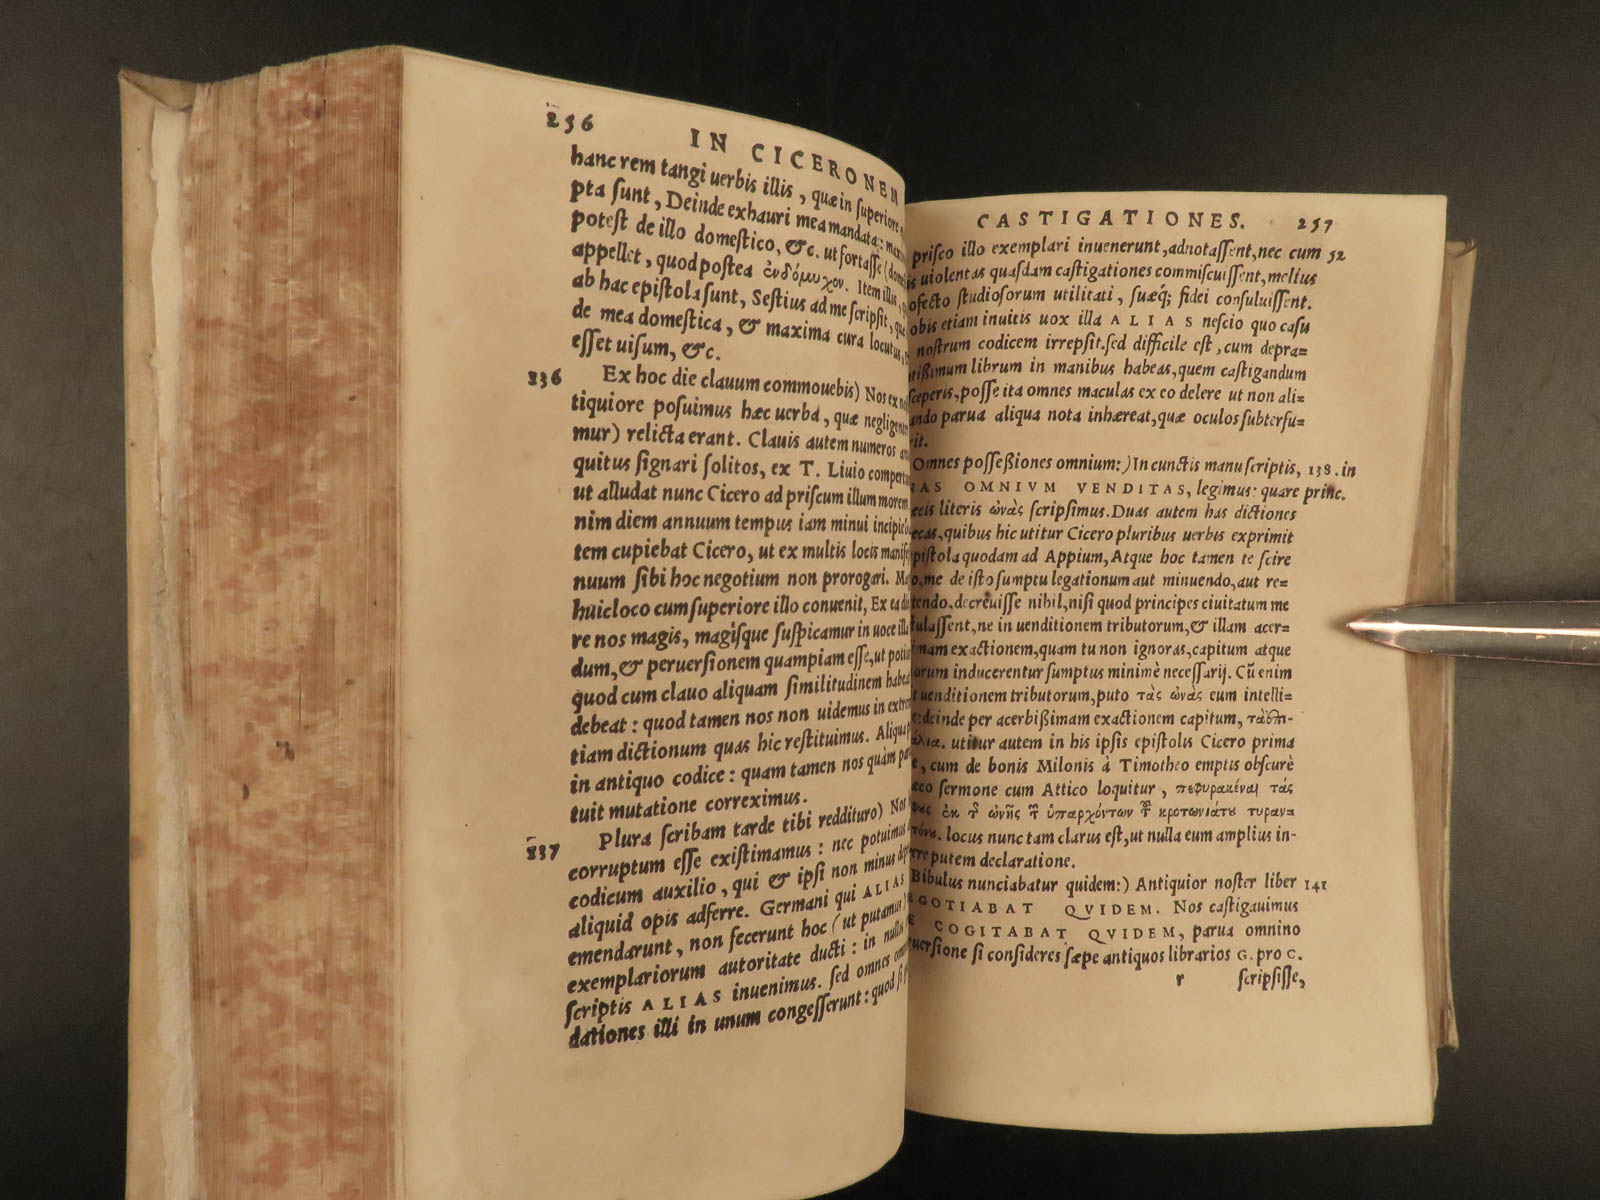 256
IN CICERONEM
hanc rem tangi uerbis illis, quæ in superiore
pta sunt, Deinde exhauri mea mandata: max
potest de illo domestico, &c. ut fortasse (dome
appellet, quod postea ἐνδόμυχον. Item illus,
ab hac epistola sunt, Sestius ad me scripsit, qu
de mea domestica, & maxima cura locutus,
esset uisum, &c.
236 Ex hoc die clauum commouebis) Nos ex
tiquiore posuimus hæc uerba, quæ negligen
mur) relicta erant. Clauis autem numeros
quitus signari solitos, ex T. Liuio compert
ut alludat nunc Cicero ad priscum illum morem
nim diem annuum tempus iam minui incipie
tem cupiebat Cicero, ut ex multis locis manife
nuum sibi hoc negotium non prorogari. M
huic loco cum superiore illo conuenit, Ex ea die
re nos magis, magisque suspicamur in uoce illa
dum, & peruersionem quampiam esse, ut poti
quod cum clauo aliquam similitudinem habe
debeat: quod tamen nos non uidemus in extre
tiam dictionum quas hic restituimus. Aliqua
in antiquo codice: quam tamen nos quàm pa
tuit mutatione correximus.
237 Plura scribam tarde tibi reddituro) Nos
corruptum esse existimamus: nec potuimus
codicum auxilio, qui & ipsi non minus dep
aliquid opis adferre. Germani qui ALIAS
emendarunt, non fecerunt hoc (ut putamus)
exemplariorum autoritate ducti: in nullis
scriptis ALIAS inuenimus. sed omnes
dationes illi in unum congesserunt: quod si
CASTIGATIONES. 257
prisco illo exemplari inuenerunt, adnotassent, nec cum 52
is uiolentas quasdam castigationes commiscuissent, melius
ofecto studiosorum utilitati, suæq; fidei consuluissent.
obis etiam inuitis uox illa ALIAS nescio quo casu
nostrum codicem irrepsit. sed difficile est, cum depra=
tißimum librum in manibus habeas, quem castigandum
sceperis, posse ita omnes maculas ex eo delere ut non ali=
ando parua aliqua nota inhæreat, quæ oculos subterfu=
rit.
Omnes possessiones omnium:) In cunctis manuscriptis, 138. in
AS OMNIVM VENDITAS, legimus: quare princ.
ecis literis ὠνὰς scripsimus. Duas autem has dictiones
ecas, quibus hic utitur Cicero pluribus uerbis exprimit
pistola quodam ad Appium, Atque hoc tamen te scire
o, me de isto sumptu legationum aut minuendo, aut re=
tendo, decreuisse nihil, nisi quod principes ciuitatum me
tulassent, ne in uenditionem tributorum, & illam acer=
imam exactionem, quam tu non ignoras, capitum atque
orum inducerentur sumptus minimè necessarij. Cũ enim
t uenditionem tributorum, puto τὰς ὠνὰς eum intelli=
e: deinde per acerbißimam exactionem capitum, τὰ ἐπι-
άλια. utitur autem in his ipsis epistolis Cicero prima
e, cum de bonis Milonis à Timotheo emptis obscurè
æco sermone cum Attico loquitur, πεφυρακέναι τὰς
ἐκ τ ὠνῆς τ ὑπαρχόντων τ κροτωνιάτου τυραν=
τόνου. locus nunc tam clarus est, ut nulla eum amplius in-
ere putem declaratione.
Bibulus nunciabatur quidem:) Antiquior noster liber 141
GOTIABAT QVIDEM. Nos castigauimus
E COGITABAT QVIDEM, parua omnino
uersione si consideres sæpe antiquos librarios G. pro C.
r scripsisse,